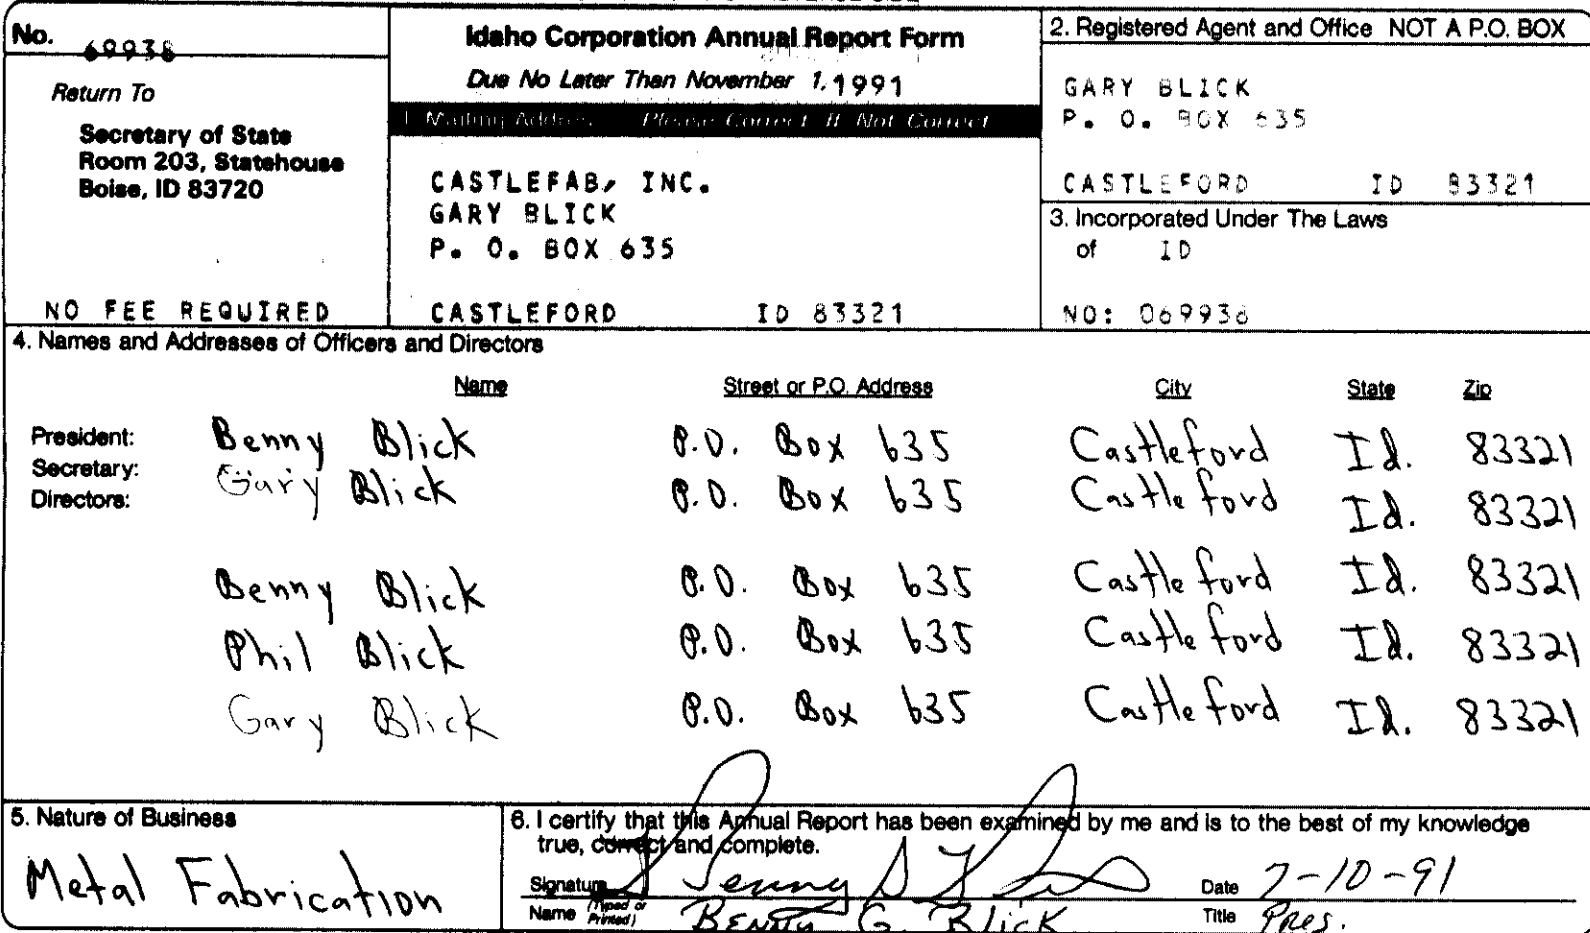 No. 69938
Return To
Secretary of State
Room 203, Statehouse
Boise, ID 83720
NO FEE REQUIRED
Idaho Corporation Annual Report Form
Due No Later Than November 1, 1991
1. Mailing Address Please Correct If Not Correct
CASTLEFAB, INC.
GARY BLICK
P. O. BOX 635
CASTLEFORD ID 83321
2. Registered Agent and Office NOT A P.O. BOX
GARY BLICK
P. O. BOX 635
CASTLEFORD ID 83321
3. Incorporated Under The Laws
of ID
NO: 069938
4. Names and Addresses of Officers and Directors
Name Street or P.O. Address City State Zip
President: Benny Blick P.O. Box 635 Castleford Id. 83321
Secretary: Gary Blick P.O. Box 635 Castleford Id. 83321
Directors:
Benny Blick P.O. Box 635 Castleford Id. 83321
Phil Blick P.O. Box 635 Castleford Id. 83321
Gary Blick P.O. Box 635 Castleford Id. 83321
5. Nature of Business
Metal Fabrication
6. I certify that this Annual Report has been examined by me and is to the best of my knowledge
true, correct and complete.
Signature Date 7-10-91
Name (Typed or Printed) BENNY G. Blick Title Pres.